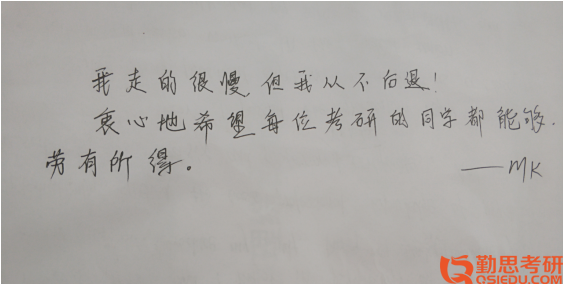 我走的很慢,但我从不后退!
衷心地希望每位考研的同学都能够
劳有所得。
——MK
勤思考研
QSIEDU.COM